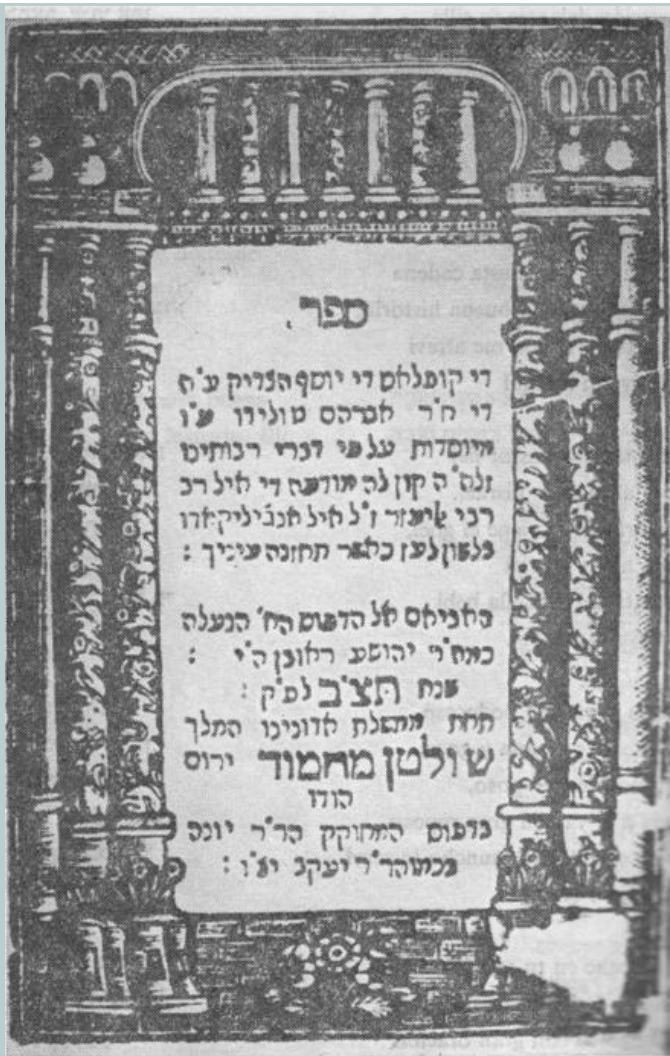 ספר
די קופלאס די יוסף הצדיק ע"ה
די ח"ר אברהם טולידו
מיוסדות על פי דברי רבותינו
זלה"ה קון לה מודעה די איל רב
רבי אליעזר ז"ל איל אנב'יליקאדו
בלשון לעז כאשר תחזנה עיניך :
הביאם אל הדפוס הח' הנעלה
כמה"ר יהושע ראובן ה"י :
שנת תצ"ב לפ"ק :
תחת ממשלת אדונינו המלך
שולטן מחמוד ירום
הודו
בדפוס המחוקק הר"ר יונה
בכמוהר"ר יעקב יצ"ו :